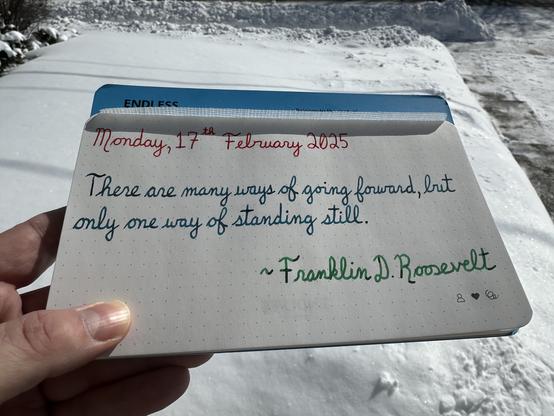 ENDLESS
Monday, 17th February 2025
There are many ways of going forward, but
only one way of standing still.
~ Franklin D. Roosevelt